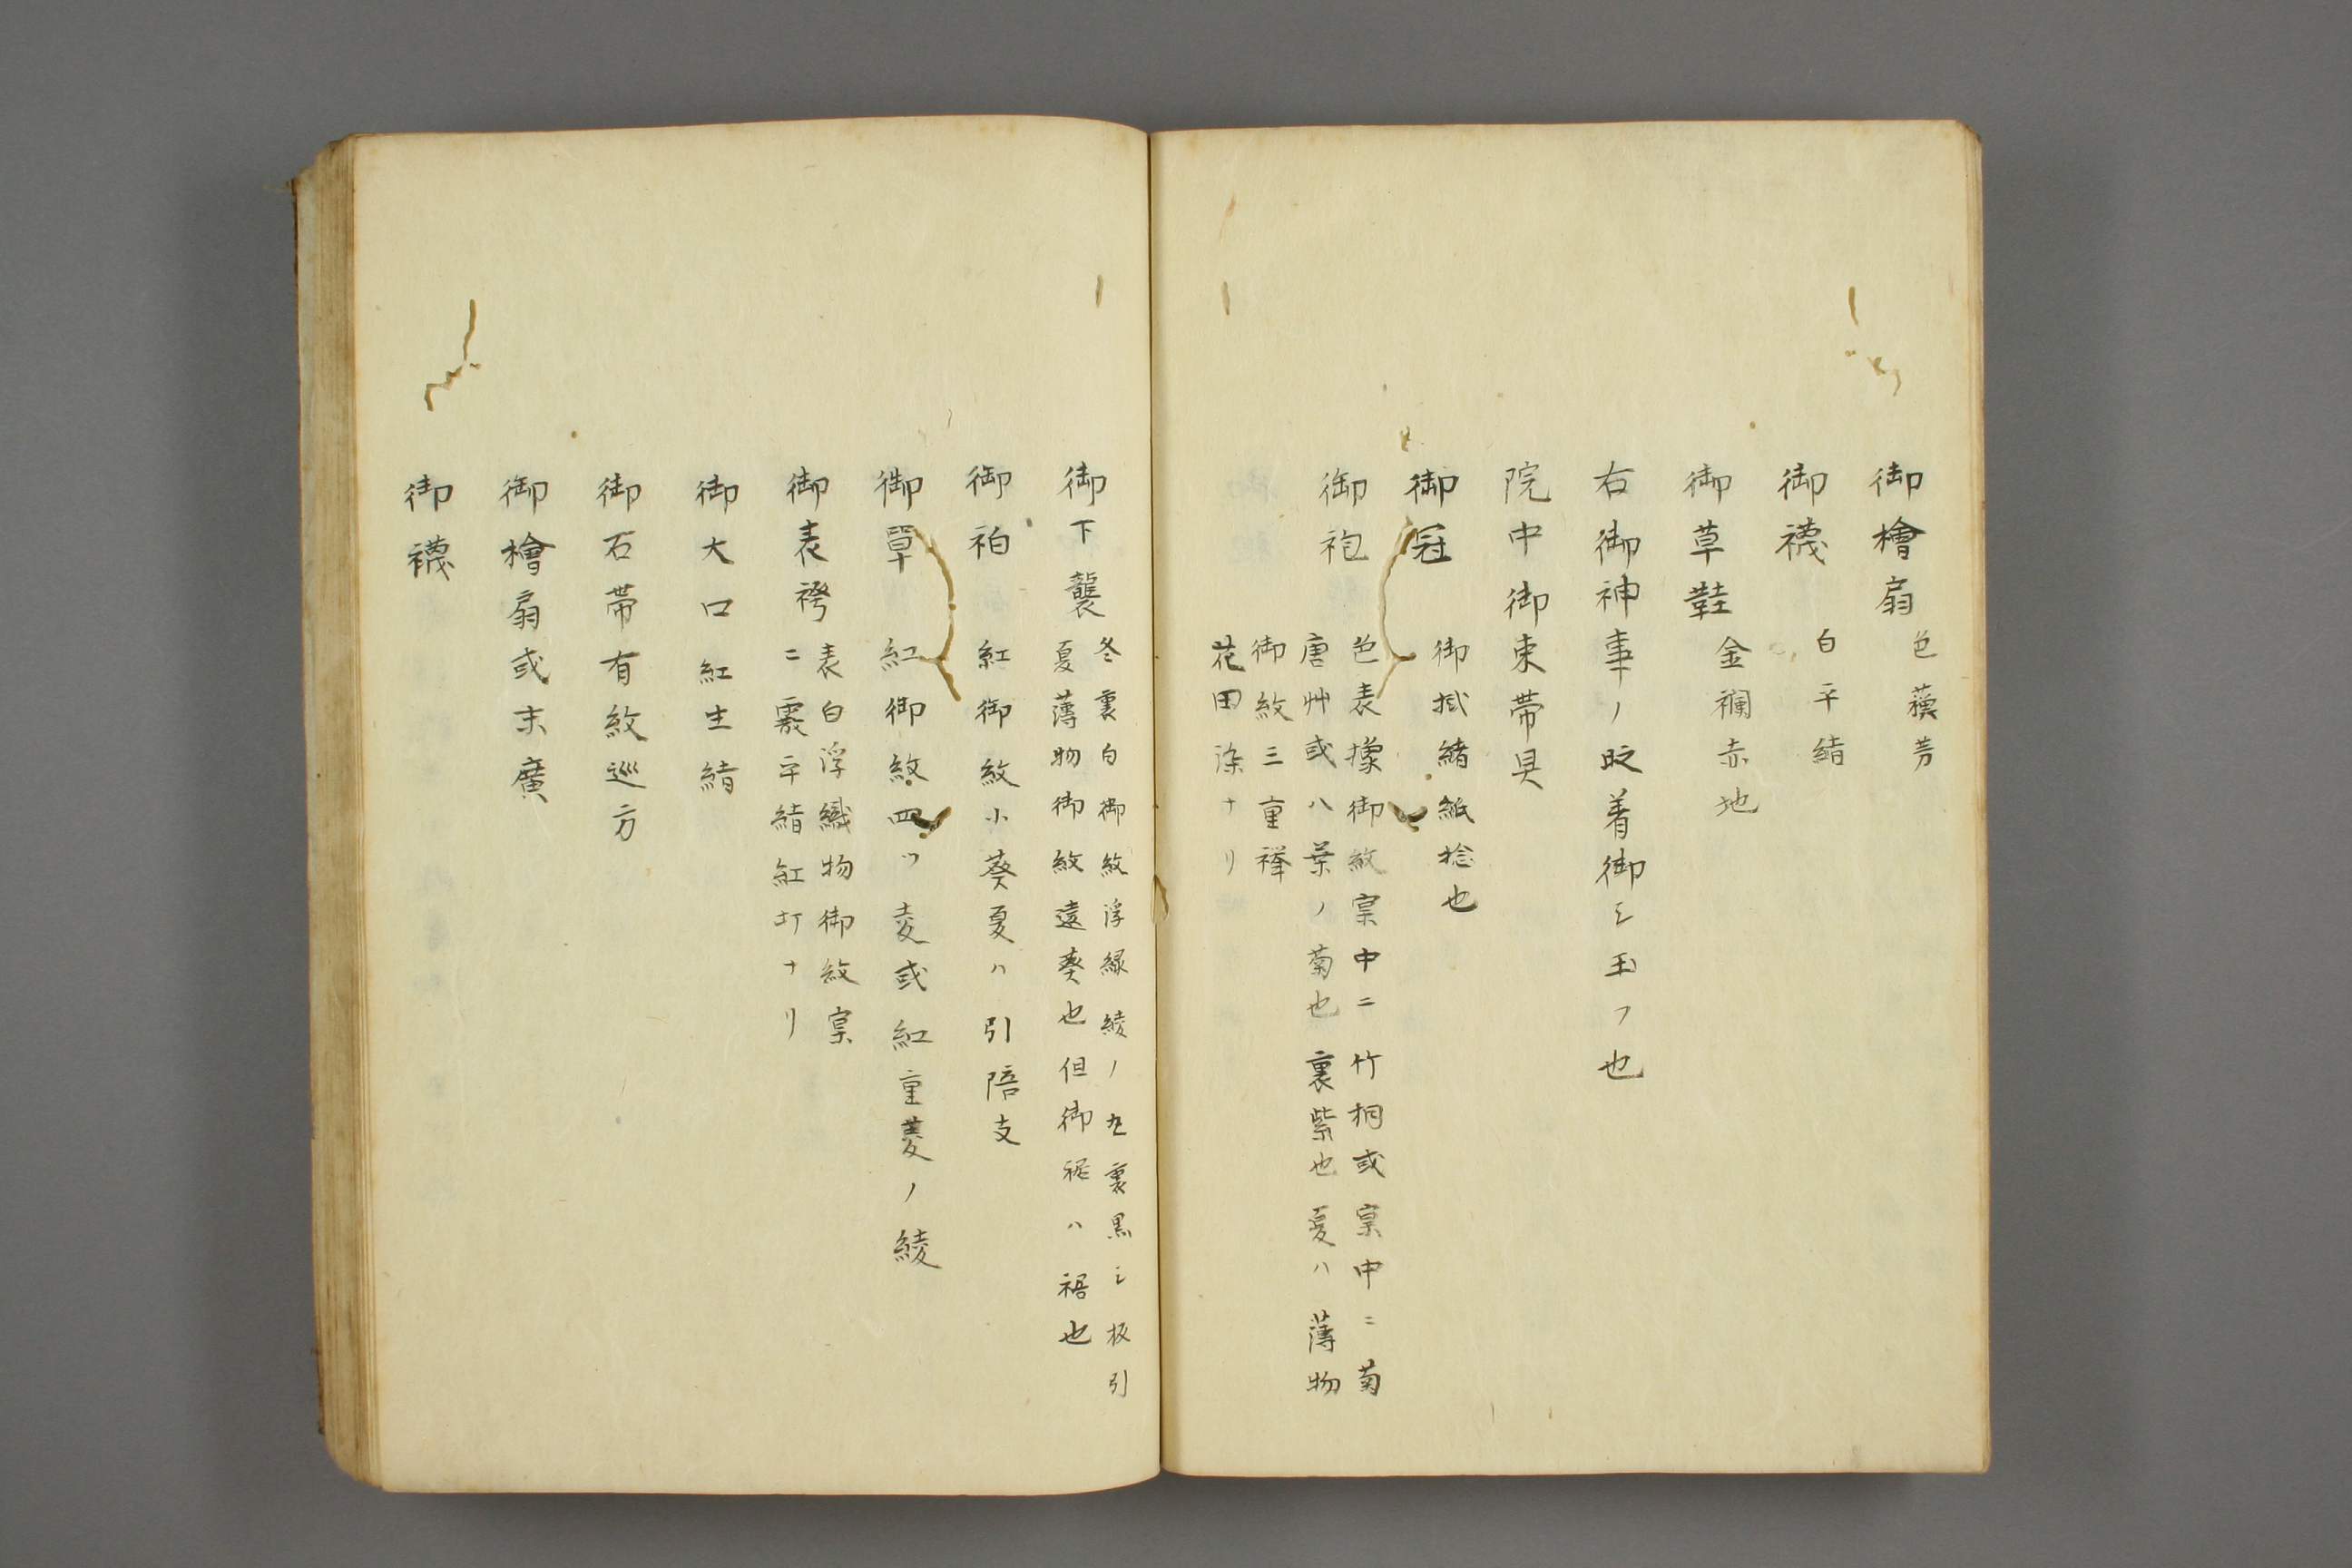 御檜扇 色蘓芳
御襪 白平絹
御草鞋 金襴赤地
右御神事ノ時着御シ玉フ也
院中御束帯具
御冠 御掛緒紙捻也
御袍 色表橡御紋窠中ニ竹桐或窠中ニ菊
唐艸或八葉ノ菊也裏紫也夏ハ薄物
御紋三重襷
花田染ナリ
御下襲 冬裏白御紋浮線綾ノ丸裏黒シ板引
夏薄物御紋遠葵也但御裾ハ裾也
御袙 紅御紋小葵夏ハ引陪支
御單 紅御紋四ツ菱或紅重菱ノ綾
御表袴 表白浮織物御紋窠
ニ霰平絹紅打ナリ
御大口 紅生絹
御石帯有紋巡方
御檜扇或末廣
御襪